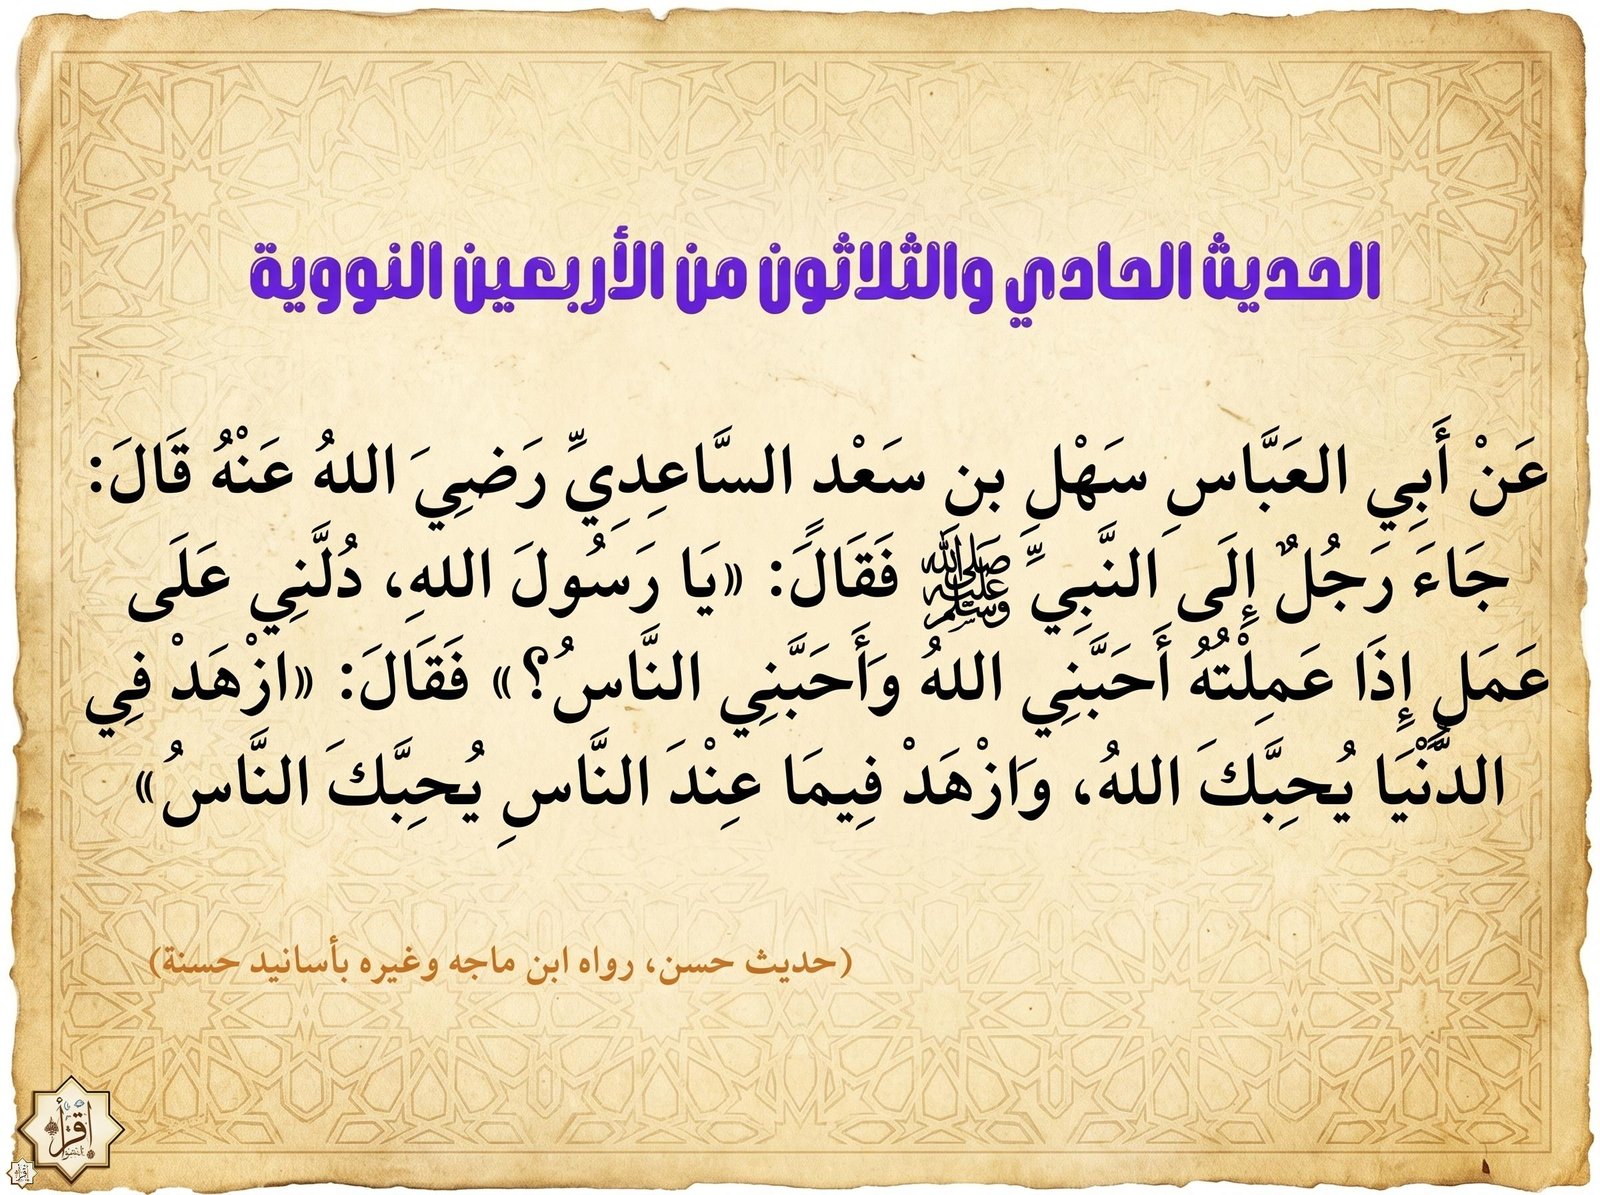 الحديث الحادي والثلاثون من الأربعين النووية
عَنْ أَبِي العَبَّاسِ سَهْلِ بن سَعْد السَّاعِدِيِّ رَضِيَ اللهُ عَنْهُ قَالَ:
جَاءَ رَجُلٌ إِلَى النَّبِيِّ ﷺ فَقَالَ: «يَا رَسُولَ اللهِ، دُلَّنِي عَلَى
عَمَلٍ إِذَا عَمِلْتُهُ أَحَبَّنِي اللهُ وَأَحَبَّنِي النَّاسُ؟» فَقَالَ: «ازْهَدْ فِي
الدُّنْيَا يُحِبَّكَ اللهُ، وَازْهَدْ فِيمَا عِنْدَ النَّاسِ يُحِبَّكَ النَّاسُ»
(حديث حسن، رواه ابن ماجه وغيره بأسانيد حسنة)
اقرأ